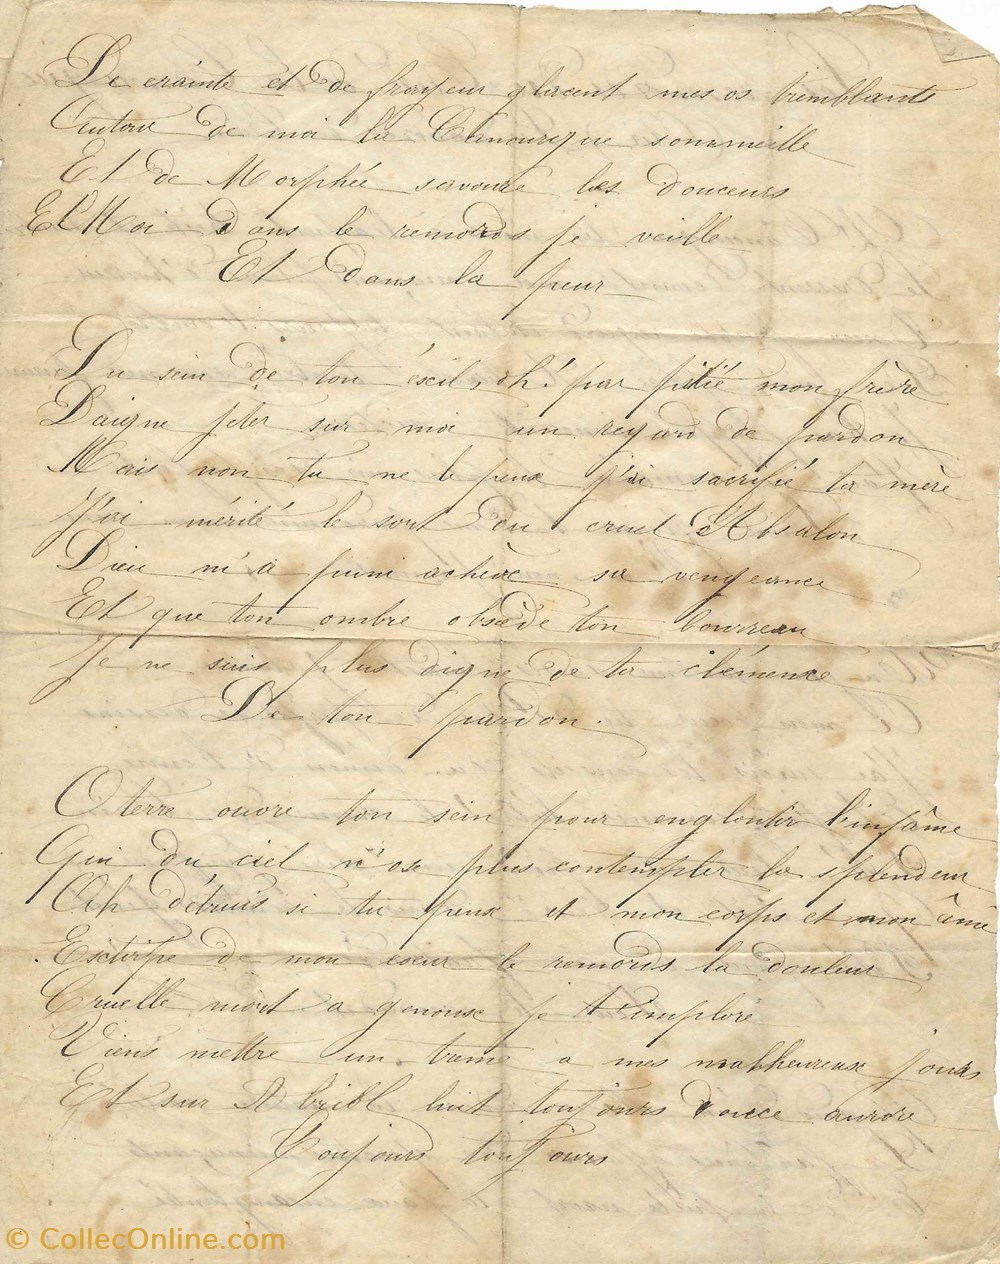 De crainte et de frayeur glacent mes os tremblants
Autour de moi la sommeille
Et de Morphée savoure les douceurs
Et Moi Dans le remords je veille
Et dans la peur
Du sein de ton éxcil, oh! par pitié mon frère
Daigne jeter sur moi un regard de pardon
Mais non tu ne le peux j'ai sacrifié ta mère
J'ai mérité le sort du cruel Absalon
Dieu m'a puni achève sa vengeance
Et que ton ombre obsède ton bourreau
Je ne suis plus digne de ta clémence
De ton pardon.
O terre ouvre ton sein pour engloutir l'infâme
Qui du ciel n'ose plus contempler la splendeur
Ah détruis si tu peux et mon corps et mon âme
Exctirpe de mon cœur le remords la douleur
Cruelle mort a genoux je t'implore
Viens mettre un terme a mes malheureux jours
Et sur luit toujours douce aurore
Toujours toujours
© CollecOnline.com